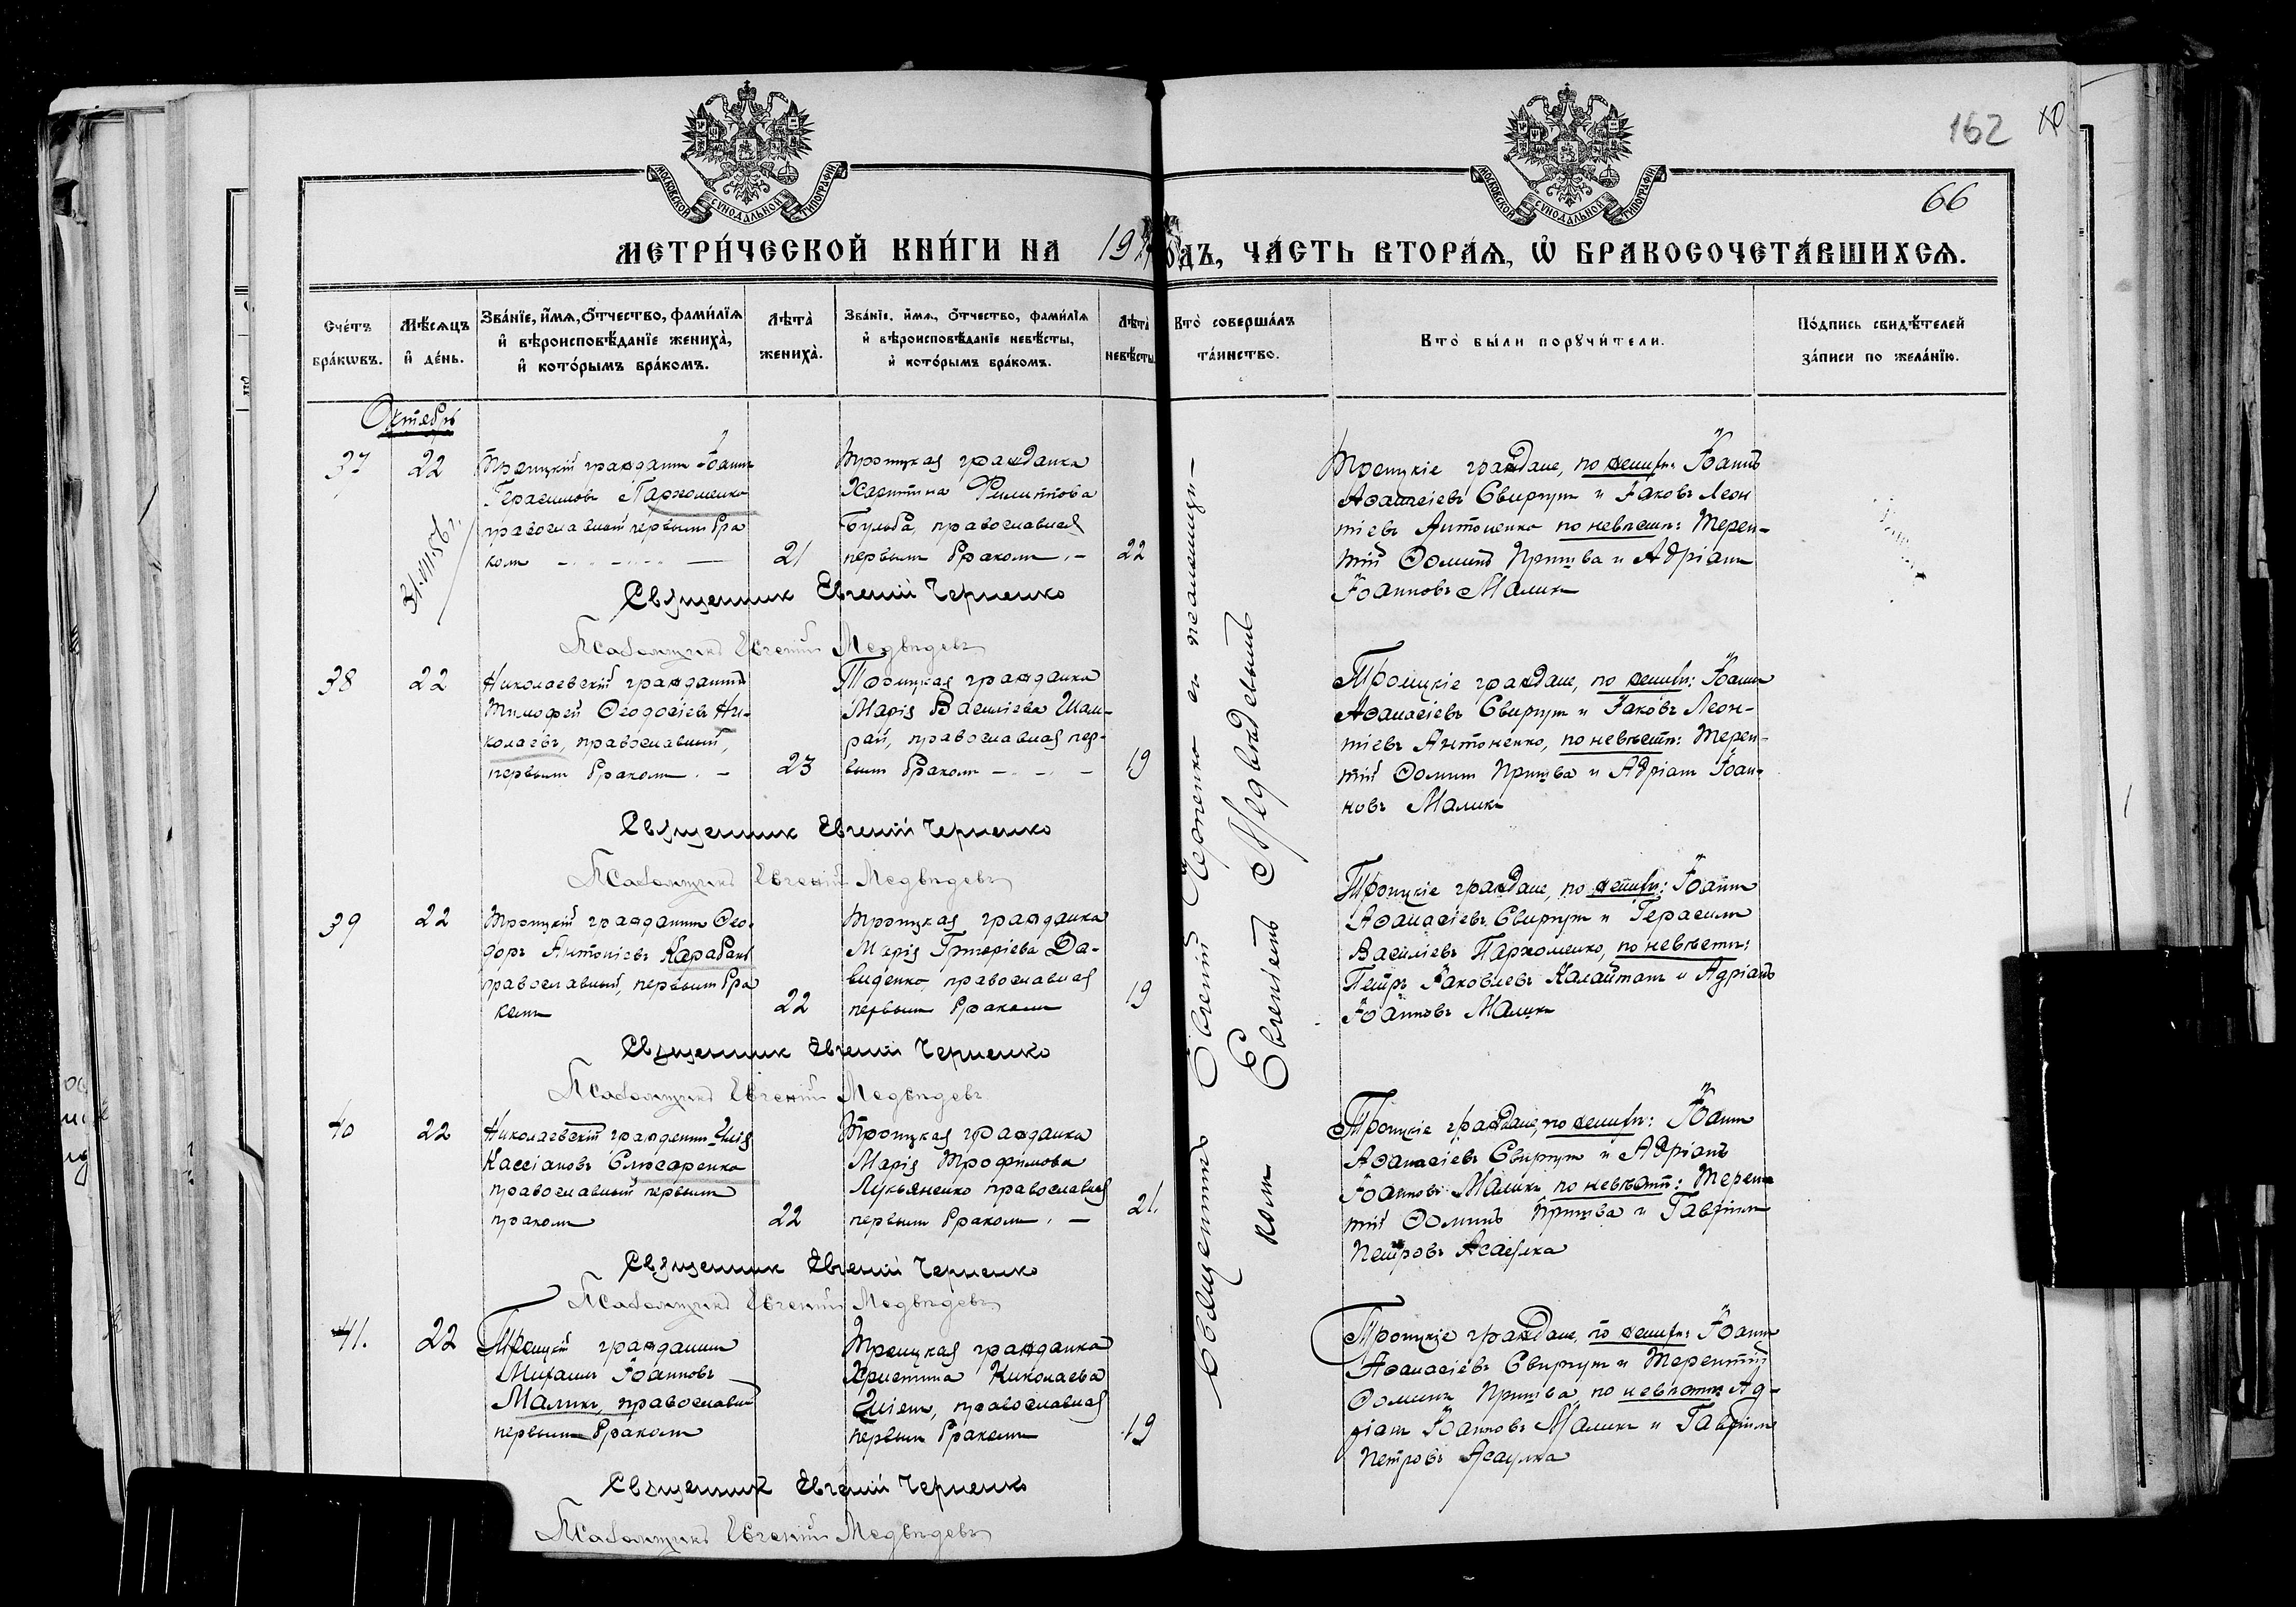 162
66
МОСКОВСКОЙ СУНОДАЛЬНОЙ ТИПОГРАФІИ
МОСКОВСКОЙ СУНОДАЛЬНОЙ ТИПОГРАФІИ
МЕТРИ́ЧЕСКОЙ КНИ́ГИ НА 19
ОДЪ, ЧА́СТЬ ВТОРА́Я, Ѡ҆ БРАКОСОЧЕТА́ВШИХСЯ.
Сче́тъ бра́кѡвъ.
Мѣ́сяцъ и҆ де́нь.
Зва́нїе, и҆́мя, ѻ҆́тчество, фами́лїя
и҆ вѣроисповѣ́данїе жениха̀,
и҆ кото́рымъ бра́комъ.
Лѣ́та̀ жениха̀.
Зва́нїе, и҆́мя, ѻ҆́тчество, фами́лїя
и҆ вѣроисповѣ́данїе невѣ́сты,
и҆ кото́рымъ бра́комъ.
Лѣ́та̀ невѣ́сты.
Кто̀ соверша́лъ та́инство.
Кто̀ бы́ли поручи́тели.
По́дпись свидѣ́телей
за́писи по жела́нїю.
Октябрь
37
22
Троицкій гражданин Іоанн
Герасимовъ Пархоменко
православный первым бра
ком
21
Троицкая гражданка
Харитина Филиппова
Бульба, православная
первым браком
22
Троицкіе граждане, по жениху: Іоаннъ
Аѳанасіевъ Свиргун и Іаковъ Леон
тіевъ Антоненко по невѣстѣ: Терен-
тій Ѳоминъ Притва и Адріанъ
Іоанновъ Малик
Священник Евгеній Черненко
Псаломщикъ Евгеній Медвѣдевъ
38
22
Николаевскій гражданинъ
Тимофей Ѳеодосіевъ Ни-
колаевъ, православный,
первым браком
23
Троицкая гражданка
Марія Васильева Шам-
рай, православная пер-
вым браком
19
Троицкіе граждане, по жениху: Іоанн
Аѳанасіевъ Свиргун и Іаковъ Леон-
тіевъ Антоненко, по невѣстѣ: Терен-
тій Ѳомин Притва и Адріан Іоан-
новъ Малик
Священник Евгеній Черненко
Псаломщикъ Евгеній Медвѣдевъ
39
22
Троицкій гражданин Ѳео-
доръ Антоніевъ Карабанъ
православный, первым бра
ком
22
Троицкая гражданка
Марія Григоріева Да-
виденко, православная
первым браком
19
Троицкіе граждане, по жениху: Іоанн
Аѳанасіевъ Свиргун и Герасим
Василіевъ Пархоменко, по невѣстѣ:
Петръ Іаковлевъ Калайтан и Адріанъ
Іоанновъ Малик
Священник Евгеній Черненко
Псаломщикъ Евгеній Медвѣдевъ
40
22
Николаевскій гражданин Илія
Кассіановъ Слюсаренко
православный первым
браком
22
Троицкая гражданка
Марія Трофимова
Лукьяненко православная
первым браком
21.
Троицкіе граждане, по жениху: Іоанн
Аѳанасіевъ Свиргун и Адріанъ
Іоанновъ Малик по невѣстѣ: Терен
тій Ѳоминъ Притва и Гавріил
Петровъ Асаулка
Священник Евгеній Черненко
Псаломщикъ Евгеній Медвѣдевъ
41.
22
Троицкій гражданин
Михаилъ Іоанновъ
Малик, православный
первым браком
Троицкая гражданка
Христина Николаева
православная
первым браком
19
Троицкіе граждане, по жениху: Іоанн
Аѳанасіевъ Свиргун и Терентій
Ѳомин Притва, по невѣстѣ Ад-
ріанъ Іоанновъ Малик и Гавріил
Петровъ Асаулка
Священник Евгеній Черненко
Псаломщикъ Евгеній Медвѣдевъ
Священникъ Евгеній Черненко съ псаломщи-
ком Евгеніемъ Медвѣдевымъ